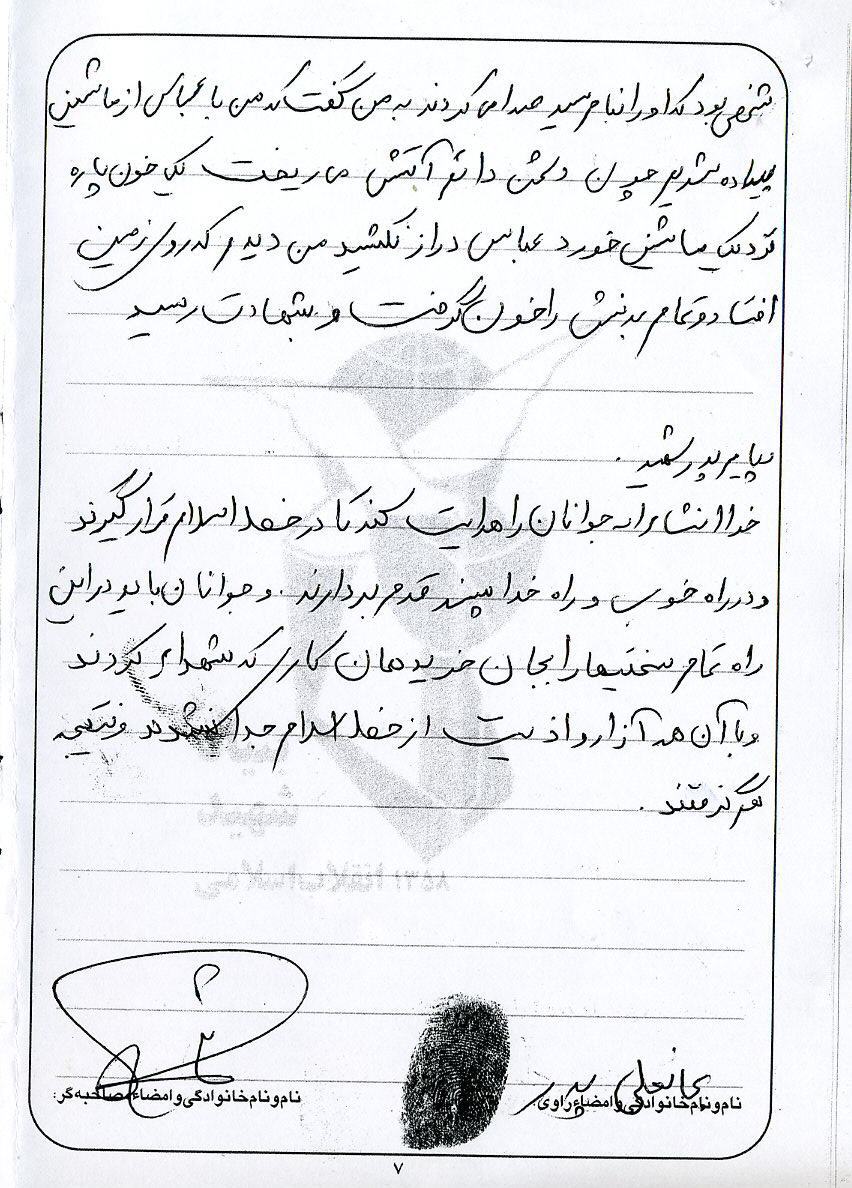 شخصی بود که او را بنام سید صدا می کردند به من گفت که من با عباس از ماشین
پیاده شدیم چون دشمن دائم آتش می ریخت یک خون پاره
نزدیک ماشین خورد عباس دراز نکشید من دیدم که روی زمین
افتاد و تمام بدنش را خون گرفت و بشهادت رسید
پیام پدر شهید .
خدا انشاء اله جوانان را هدایت کند تا در خط اسلام قرار گیرند
و در راه خوب و راه خدا پسند قدم بردارند . و جوانان باید در این
راه تمام سختیها را بجان خرید همان کاری که شهداء کردند
و با آن همه آزار و اذیت از خط اسلام جدا نشدند و نتیجه
هم گرفتند .
جانعلی پدر
نام و نام خانوادگی و امضاء راوی:
نام و نام خانوادگی و امضاء مصاحبه گر:
۷